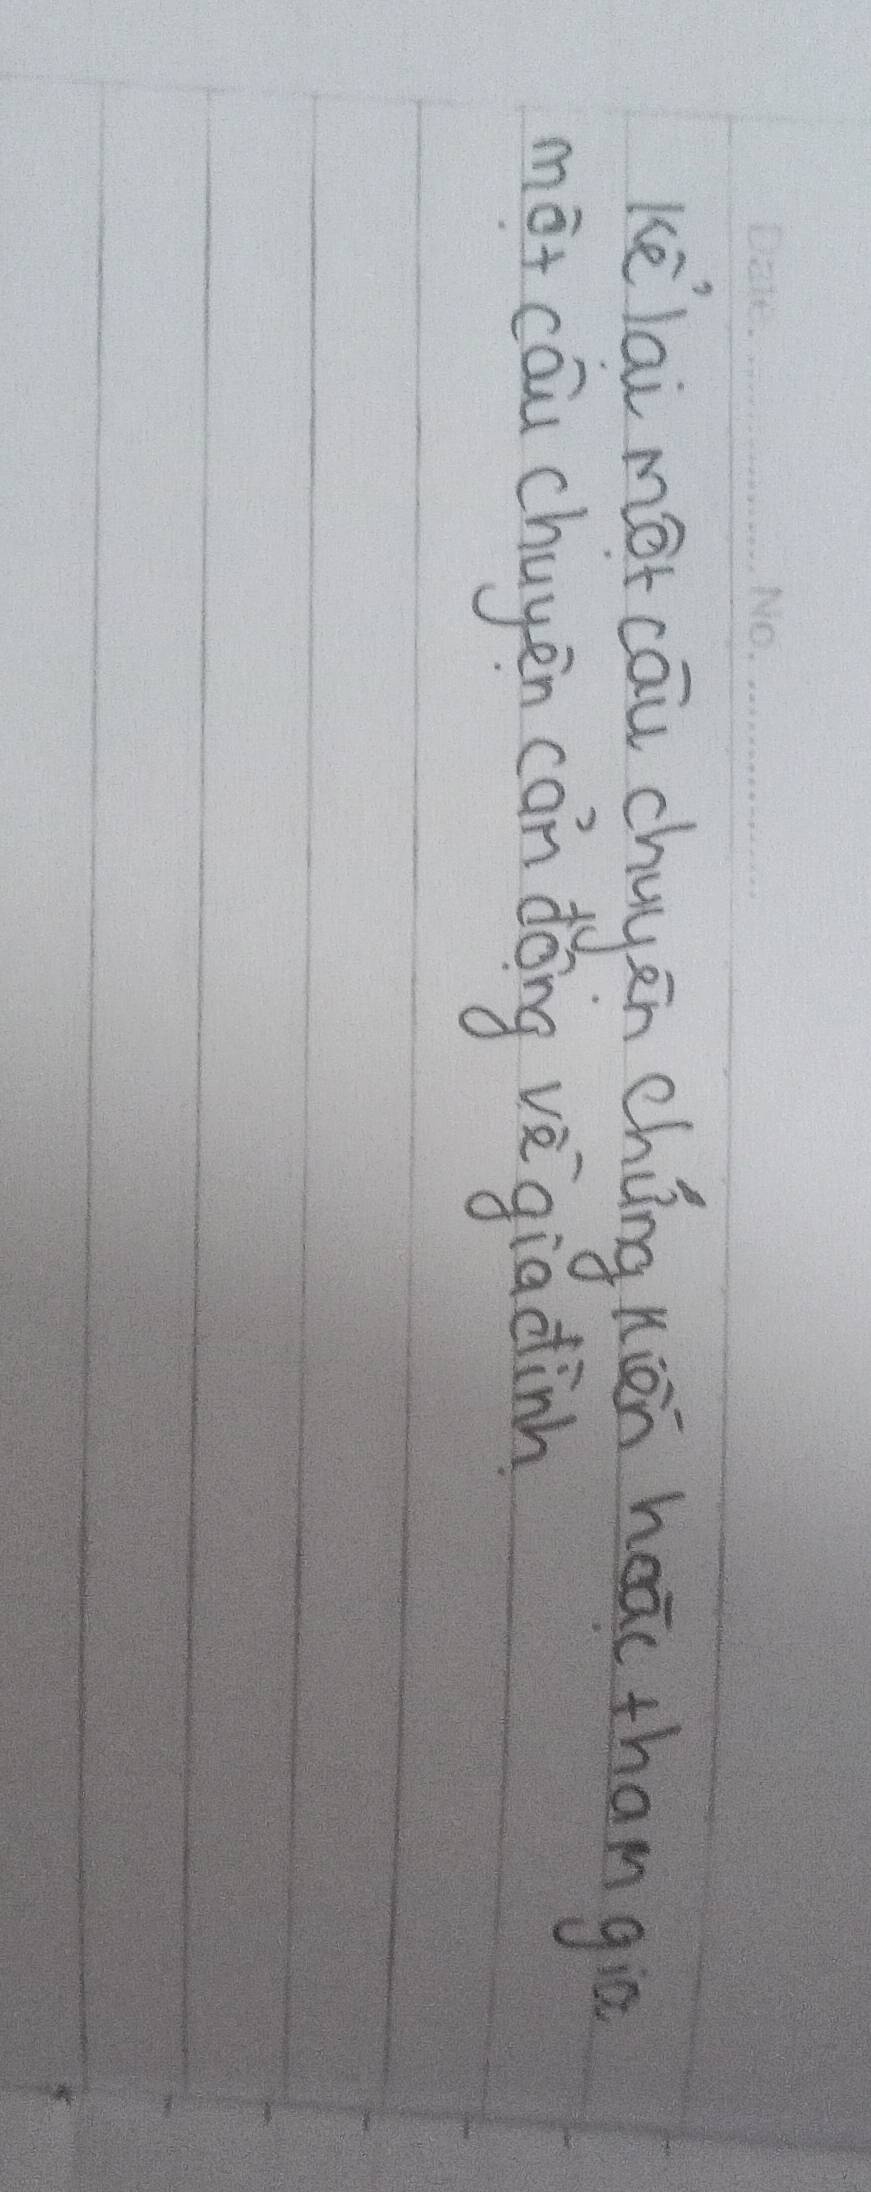 Date. No.
Kể lại một câu chuyện chứng kiến hoặc tham gia
một câu chuyện cảm động về gia đình